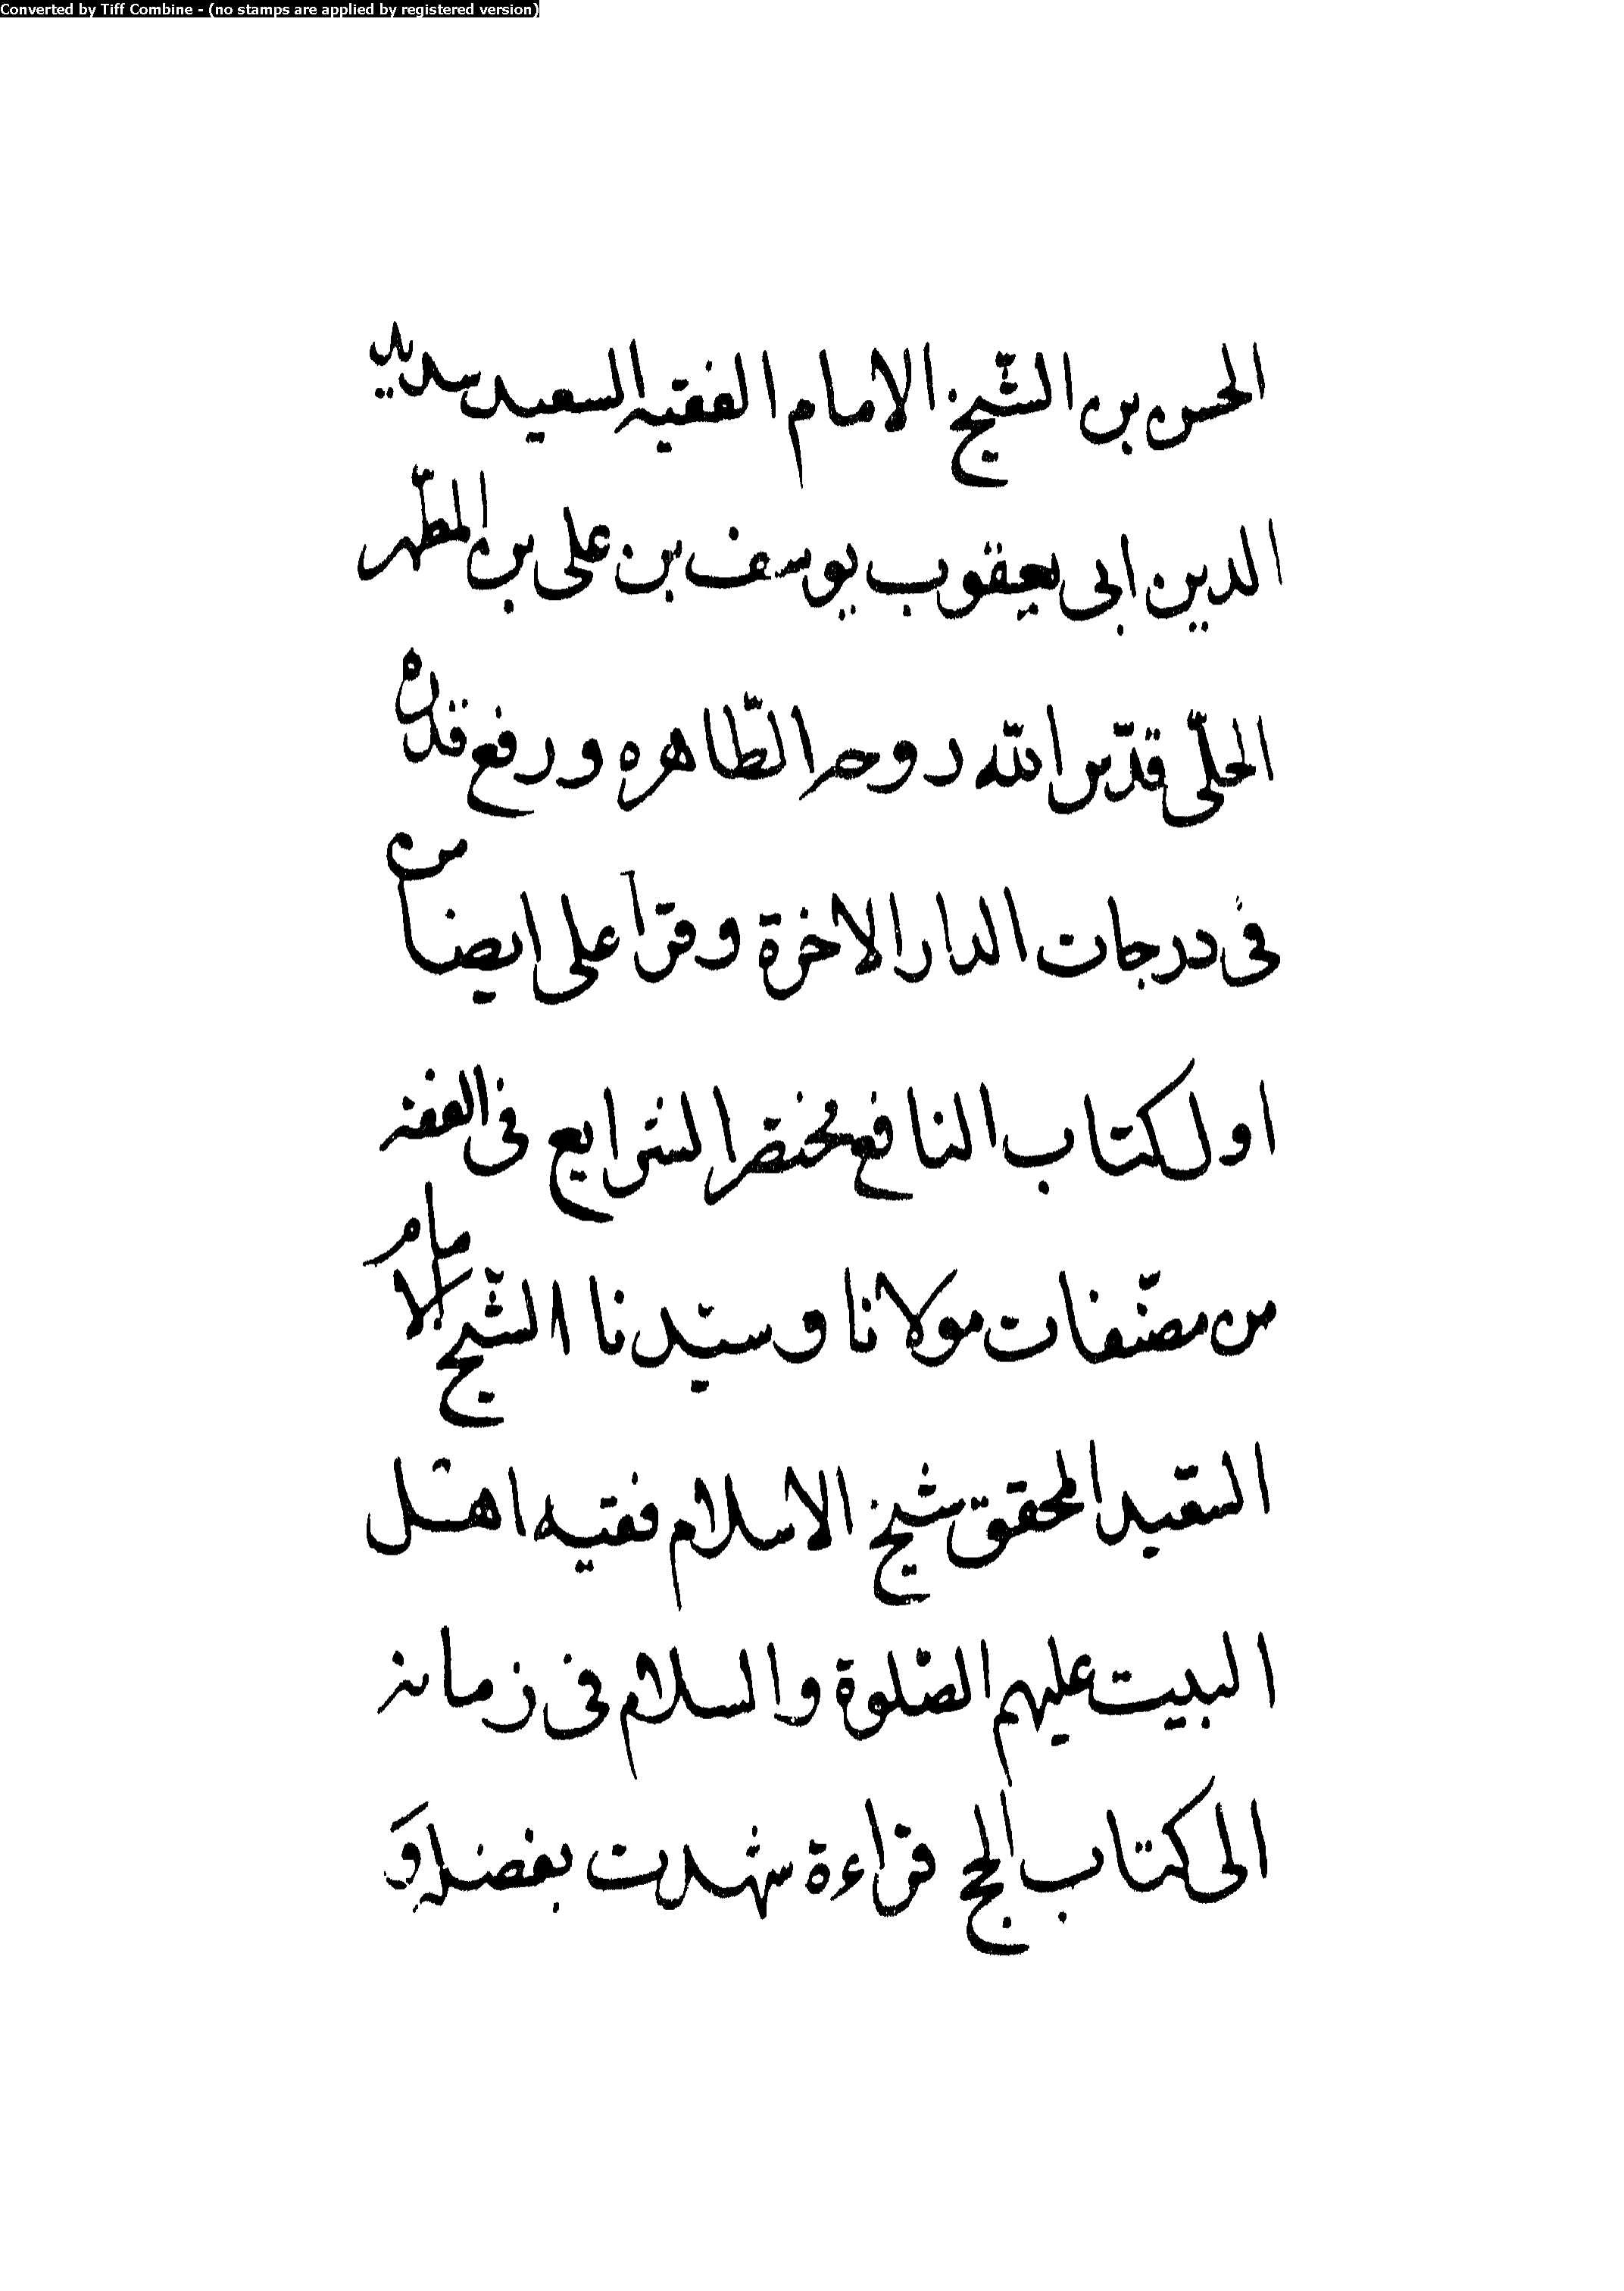 Converted by Tiff Combine - (no stamps are applied by registered version)
الحسن بن الشّيخ الامام الفقيه السعيد سديد
الدين ابى يعقوب يوسف بن على بن المطّهر
الحلّى قدّس اللّه روحه الطّاهره ورفع قدره
فى درجات الدار الاخرة وقرأ على ايضا من
اول كتاب النافع مختصر الشرايع فى الفقه
من مصنّفات مولانا وسيّدنا الشّيخ الامام
السّعيد المحقق شيخ الاسلام فقيه اهل
البيت عليهم الصّلوة والسلام فى زمانه
الى كتاب الحج قراءة شهدت بفضله وَ